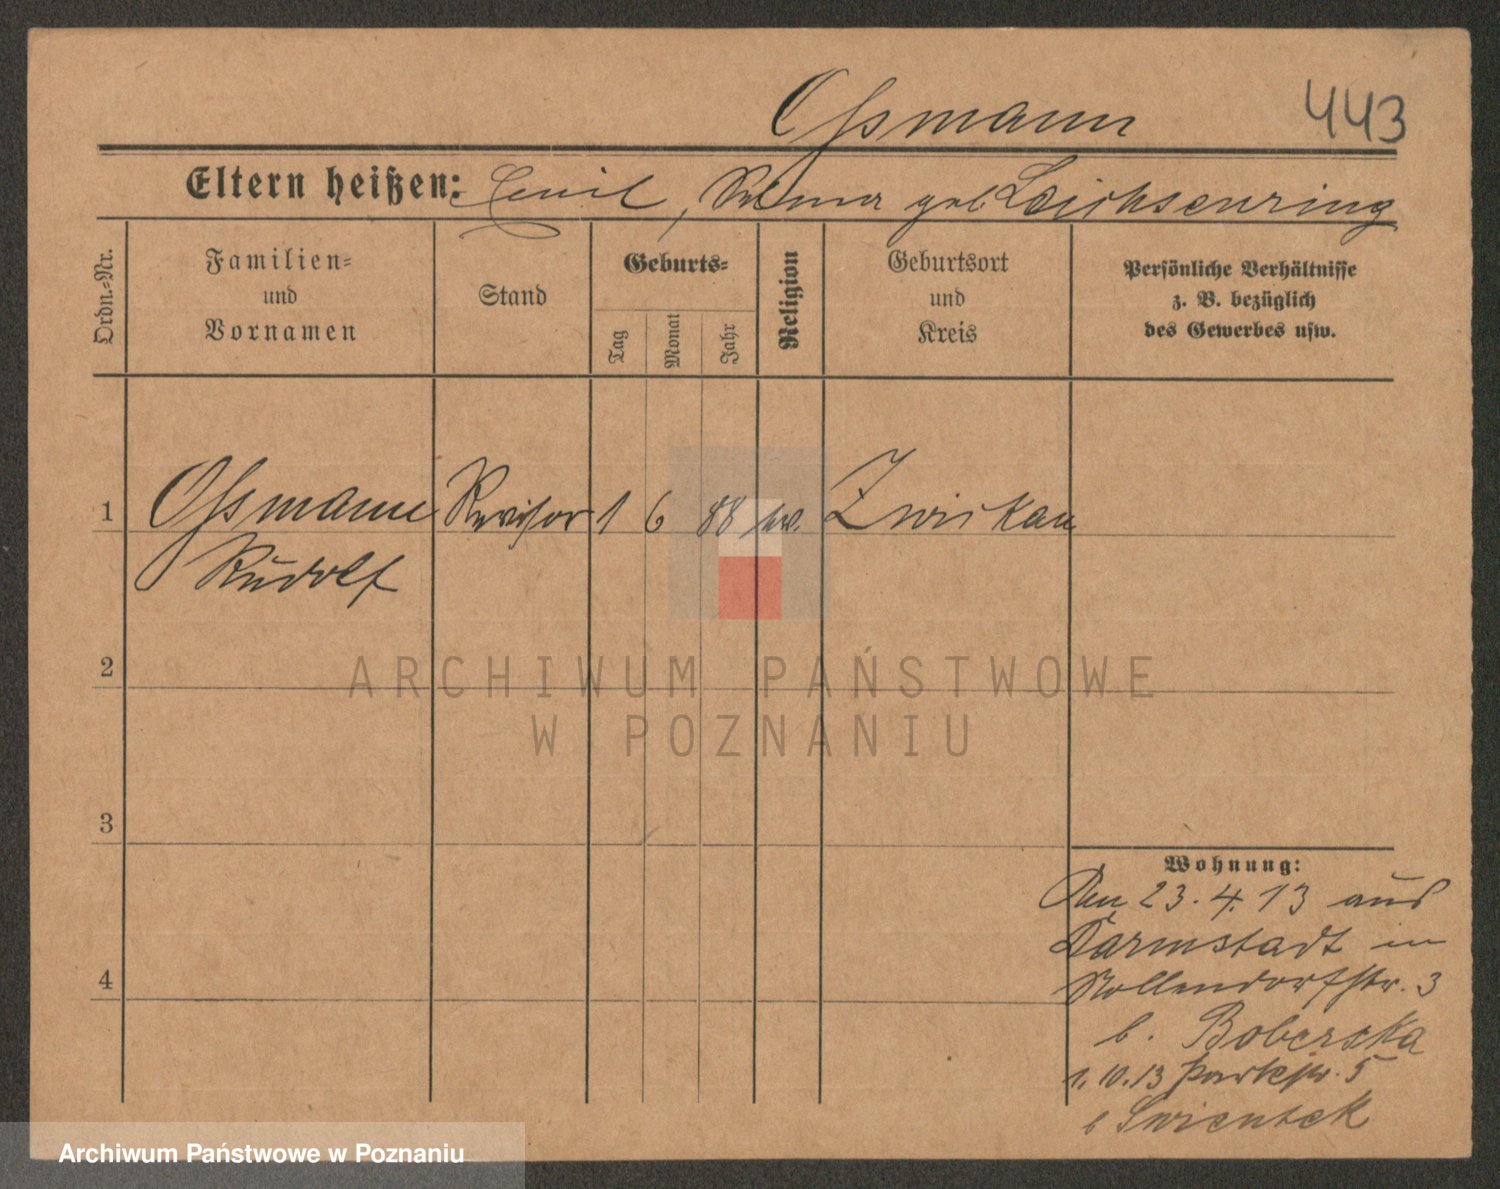 Ossmann 443
Eltern heißen: Emil, Selma geb. Leichsenring
Ordn.-Nr.
Familien-
und
Vornamen
Stand
Geburts-
Tag
Monat
Jahr
Religion
Geburtsort
und
Kreis
Persönliche Verhältnisse
z. B. bezüglich
des Gewerbes usw.
1 Ossmann Revisor 1 6 88 ev. Zwickau
Rudolf
2
3
4
Wohnung:
Den 23.4.13 aus
Darmstadt in
Nollendorfstr. 3
b. Boberska
1.10.13 Parkstr. 5
b Swientek
ARCHIWUM PAŃSTWOWE
W POZNANIU
Archiwum Państwowe w Poznaniu